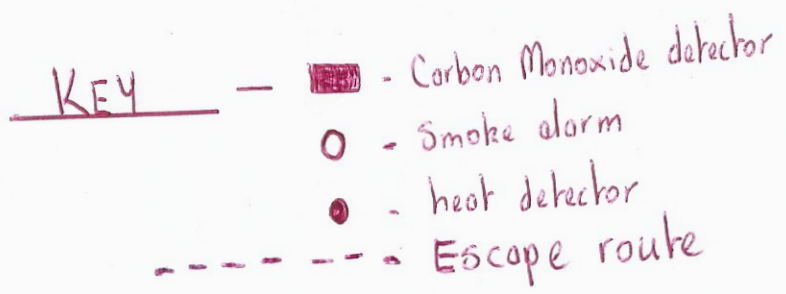 KEY - - Carbon Monoxide detector
- Smoke alarm
- heat detector
- Escape route